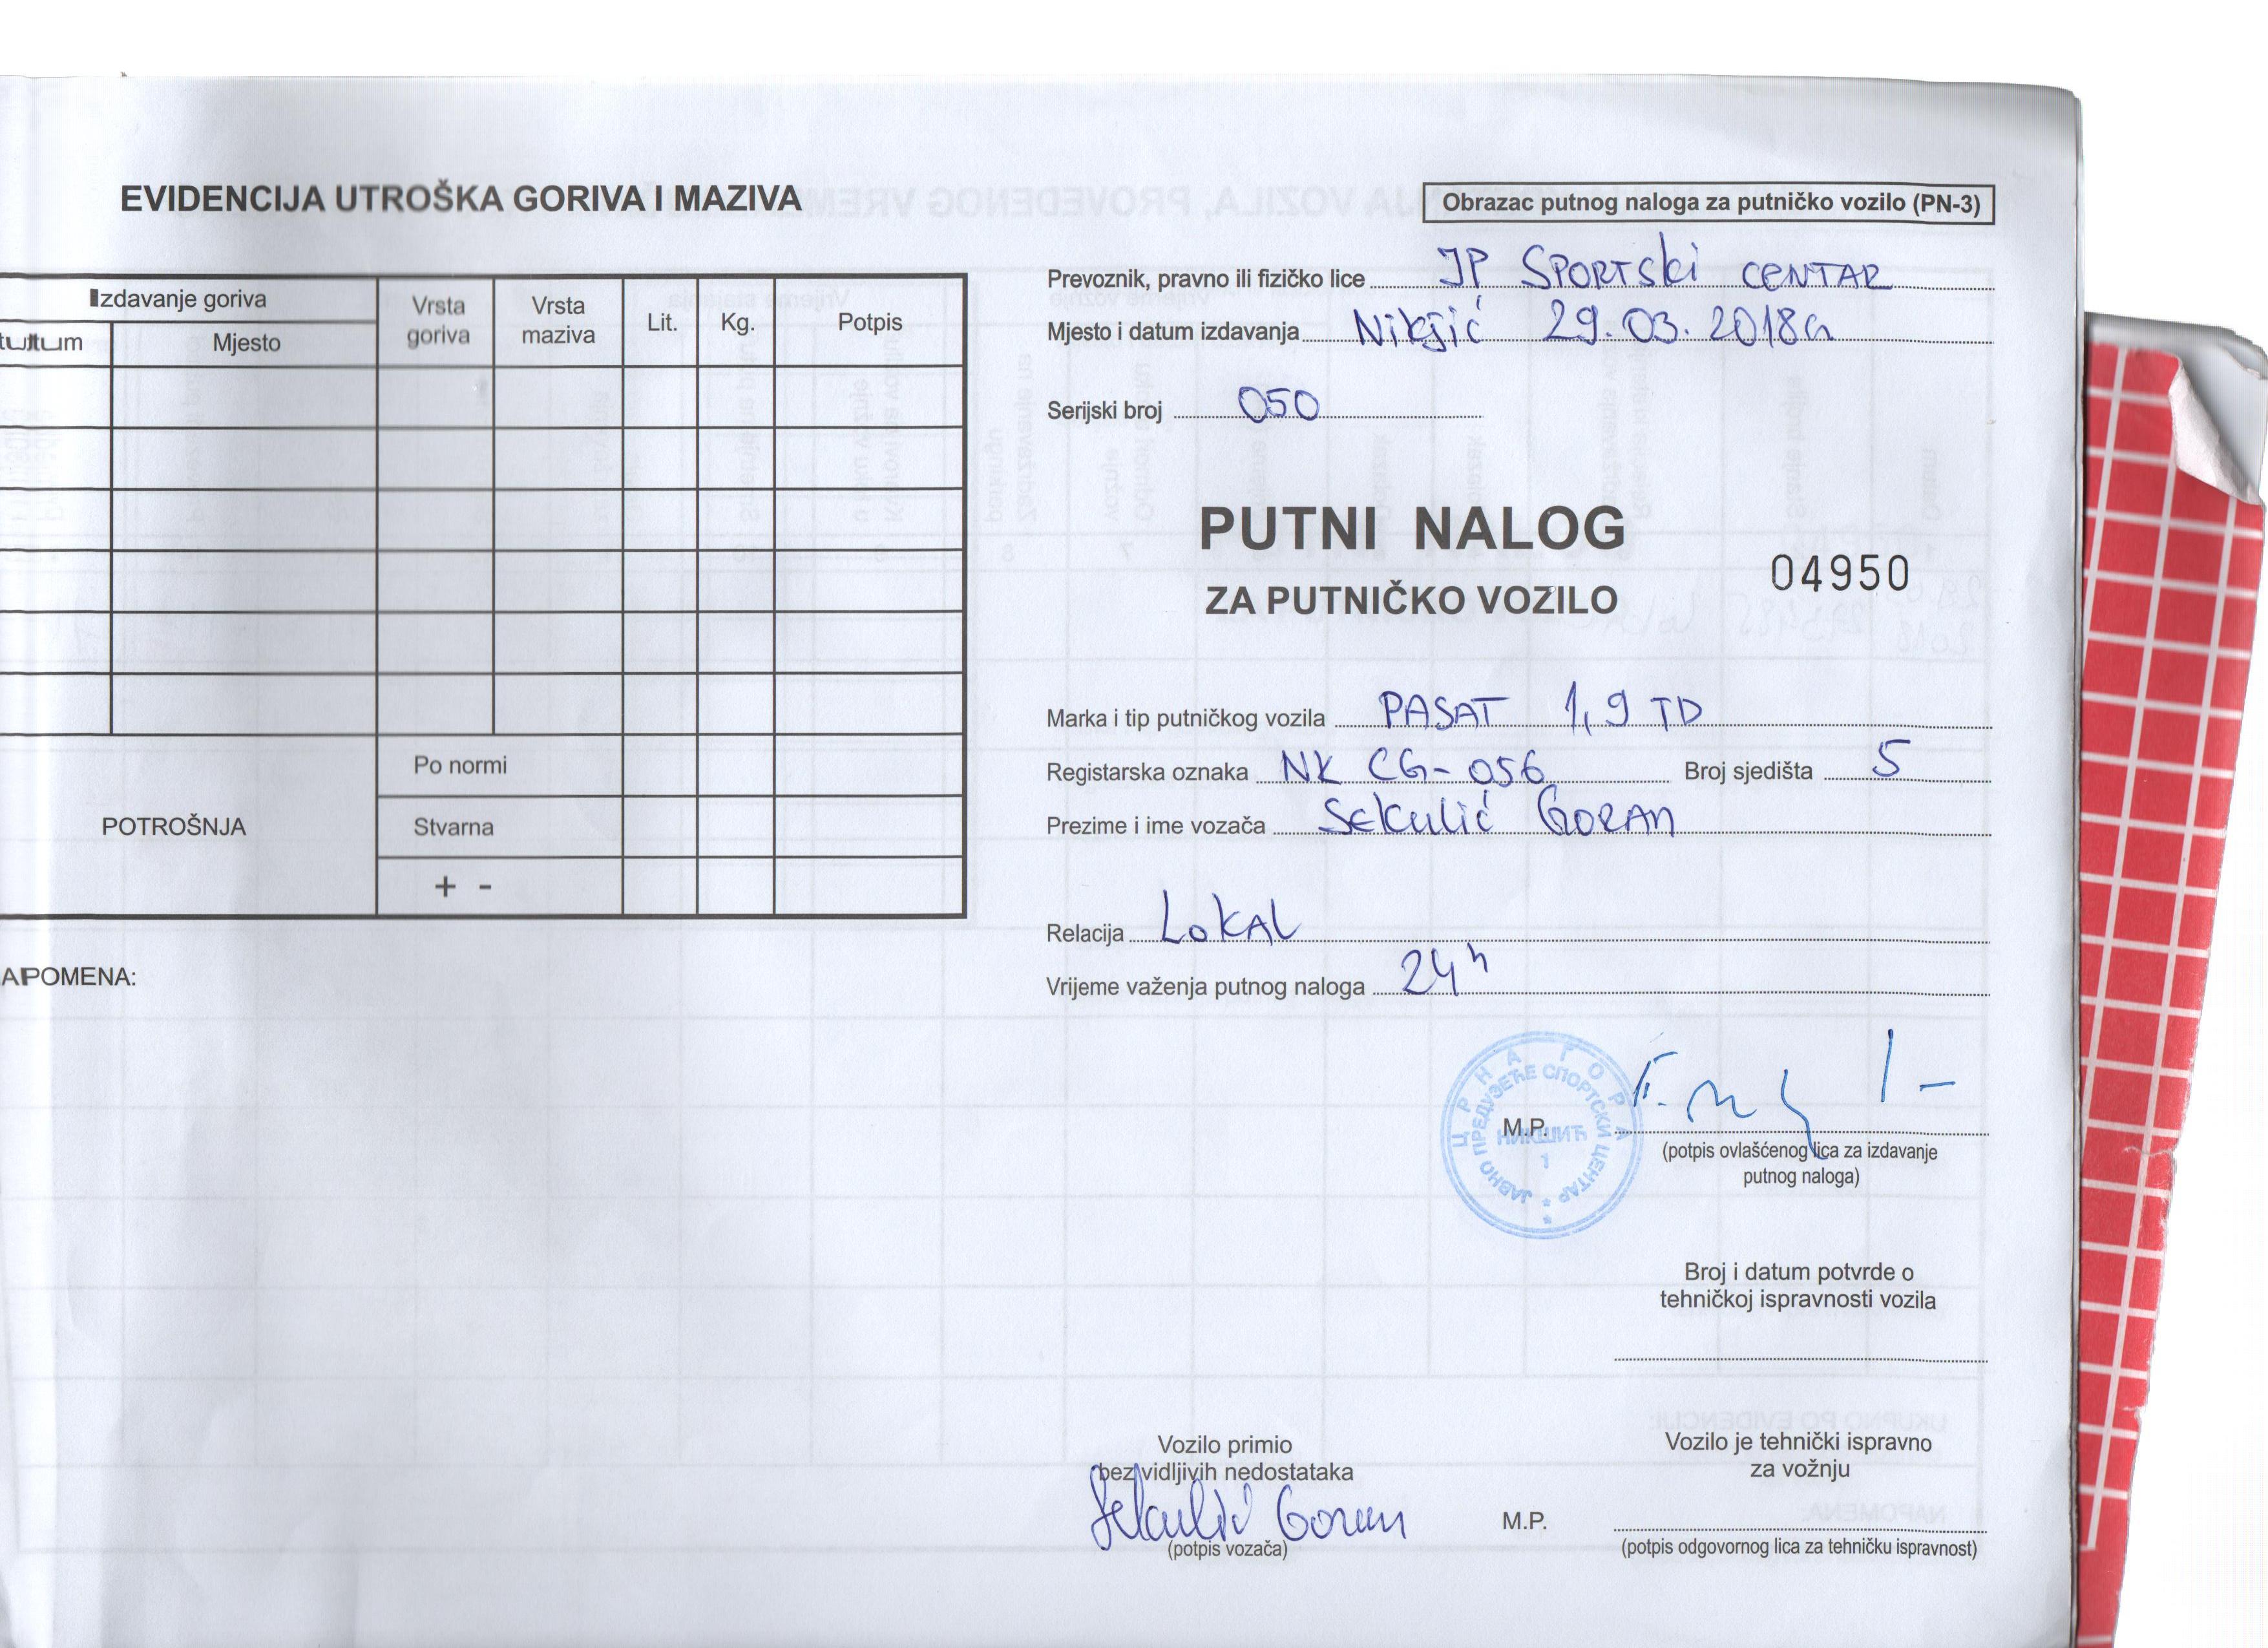 EVIDENCIJA UTROŠKA GORIVA I MAZIVA
Izdavanje goriva
Mjesto
Vrsta goriva
Vrsta maziva
Lit.
Kg.
Potpis
POTROŠNJA
Po normi
Stvarna
+ -
APOMENA:
Obrazac putnog naloga za putničko vozilo (PN-3)
Prevoznik, pravno ili fizičko lice JP SPORTSki CENTAR
Mjesto i datum izdavanja Nikšić 29.03.2018
Serijski broj 050
PUTNI NALOG
04950
ZA PUTNIČKO VOZILO
Marka i tip putničkog vozila PASAT 1,9 TD
Registarska oznaka NK CG-056 Broj sjedišta 5
Prezime i ime vozača Sekulić GORAN
Relacija LOKAL
Vrijeme važenja putnog naloga 24h
ЦРНА ГОРА
ЈАВНО ПРЕДУЗЕЋЕ СПОРТСКИ ЦЕНТАР
НИКШИЋ
1
M.P.
(potpis ovlašćenog lica za izdavanje
putnog naloga)
Broj i datum potvrde o
tehničkoj ispravnosti vozila
Vozilo primio
bez vidljivih nedostataka
Sekulić Goran
(potpis vozača)
Vozilo je tehnički ispravno
za vožnju
M.P.
(potpis odgovornog lica za tehničku ispravnost)